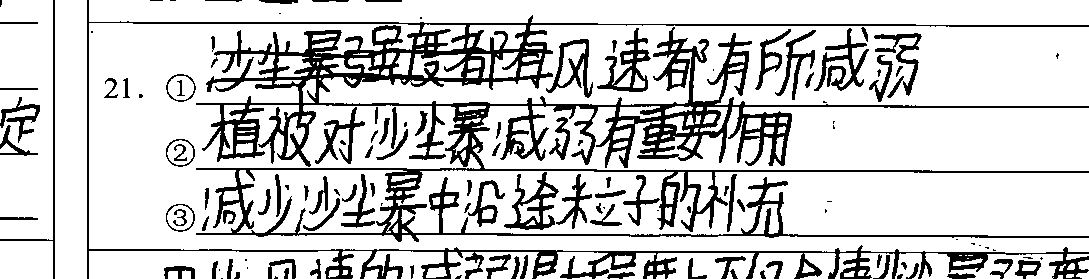 定
21. ① 沙尘暴强度都有风速都有所减弱
② 植被对沙尘暴减弱有重要作用
③ 减少沙尘暴中沿途粒子的补充